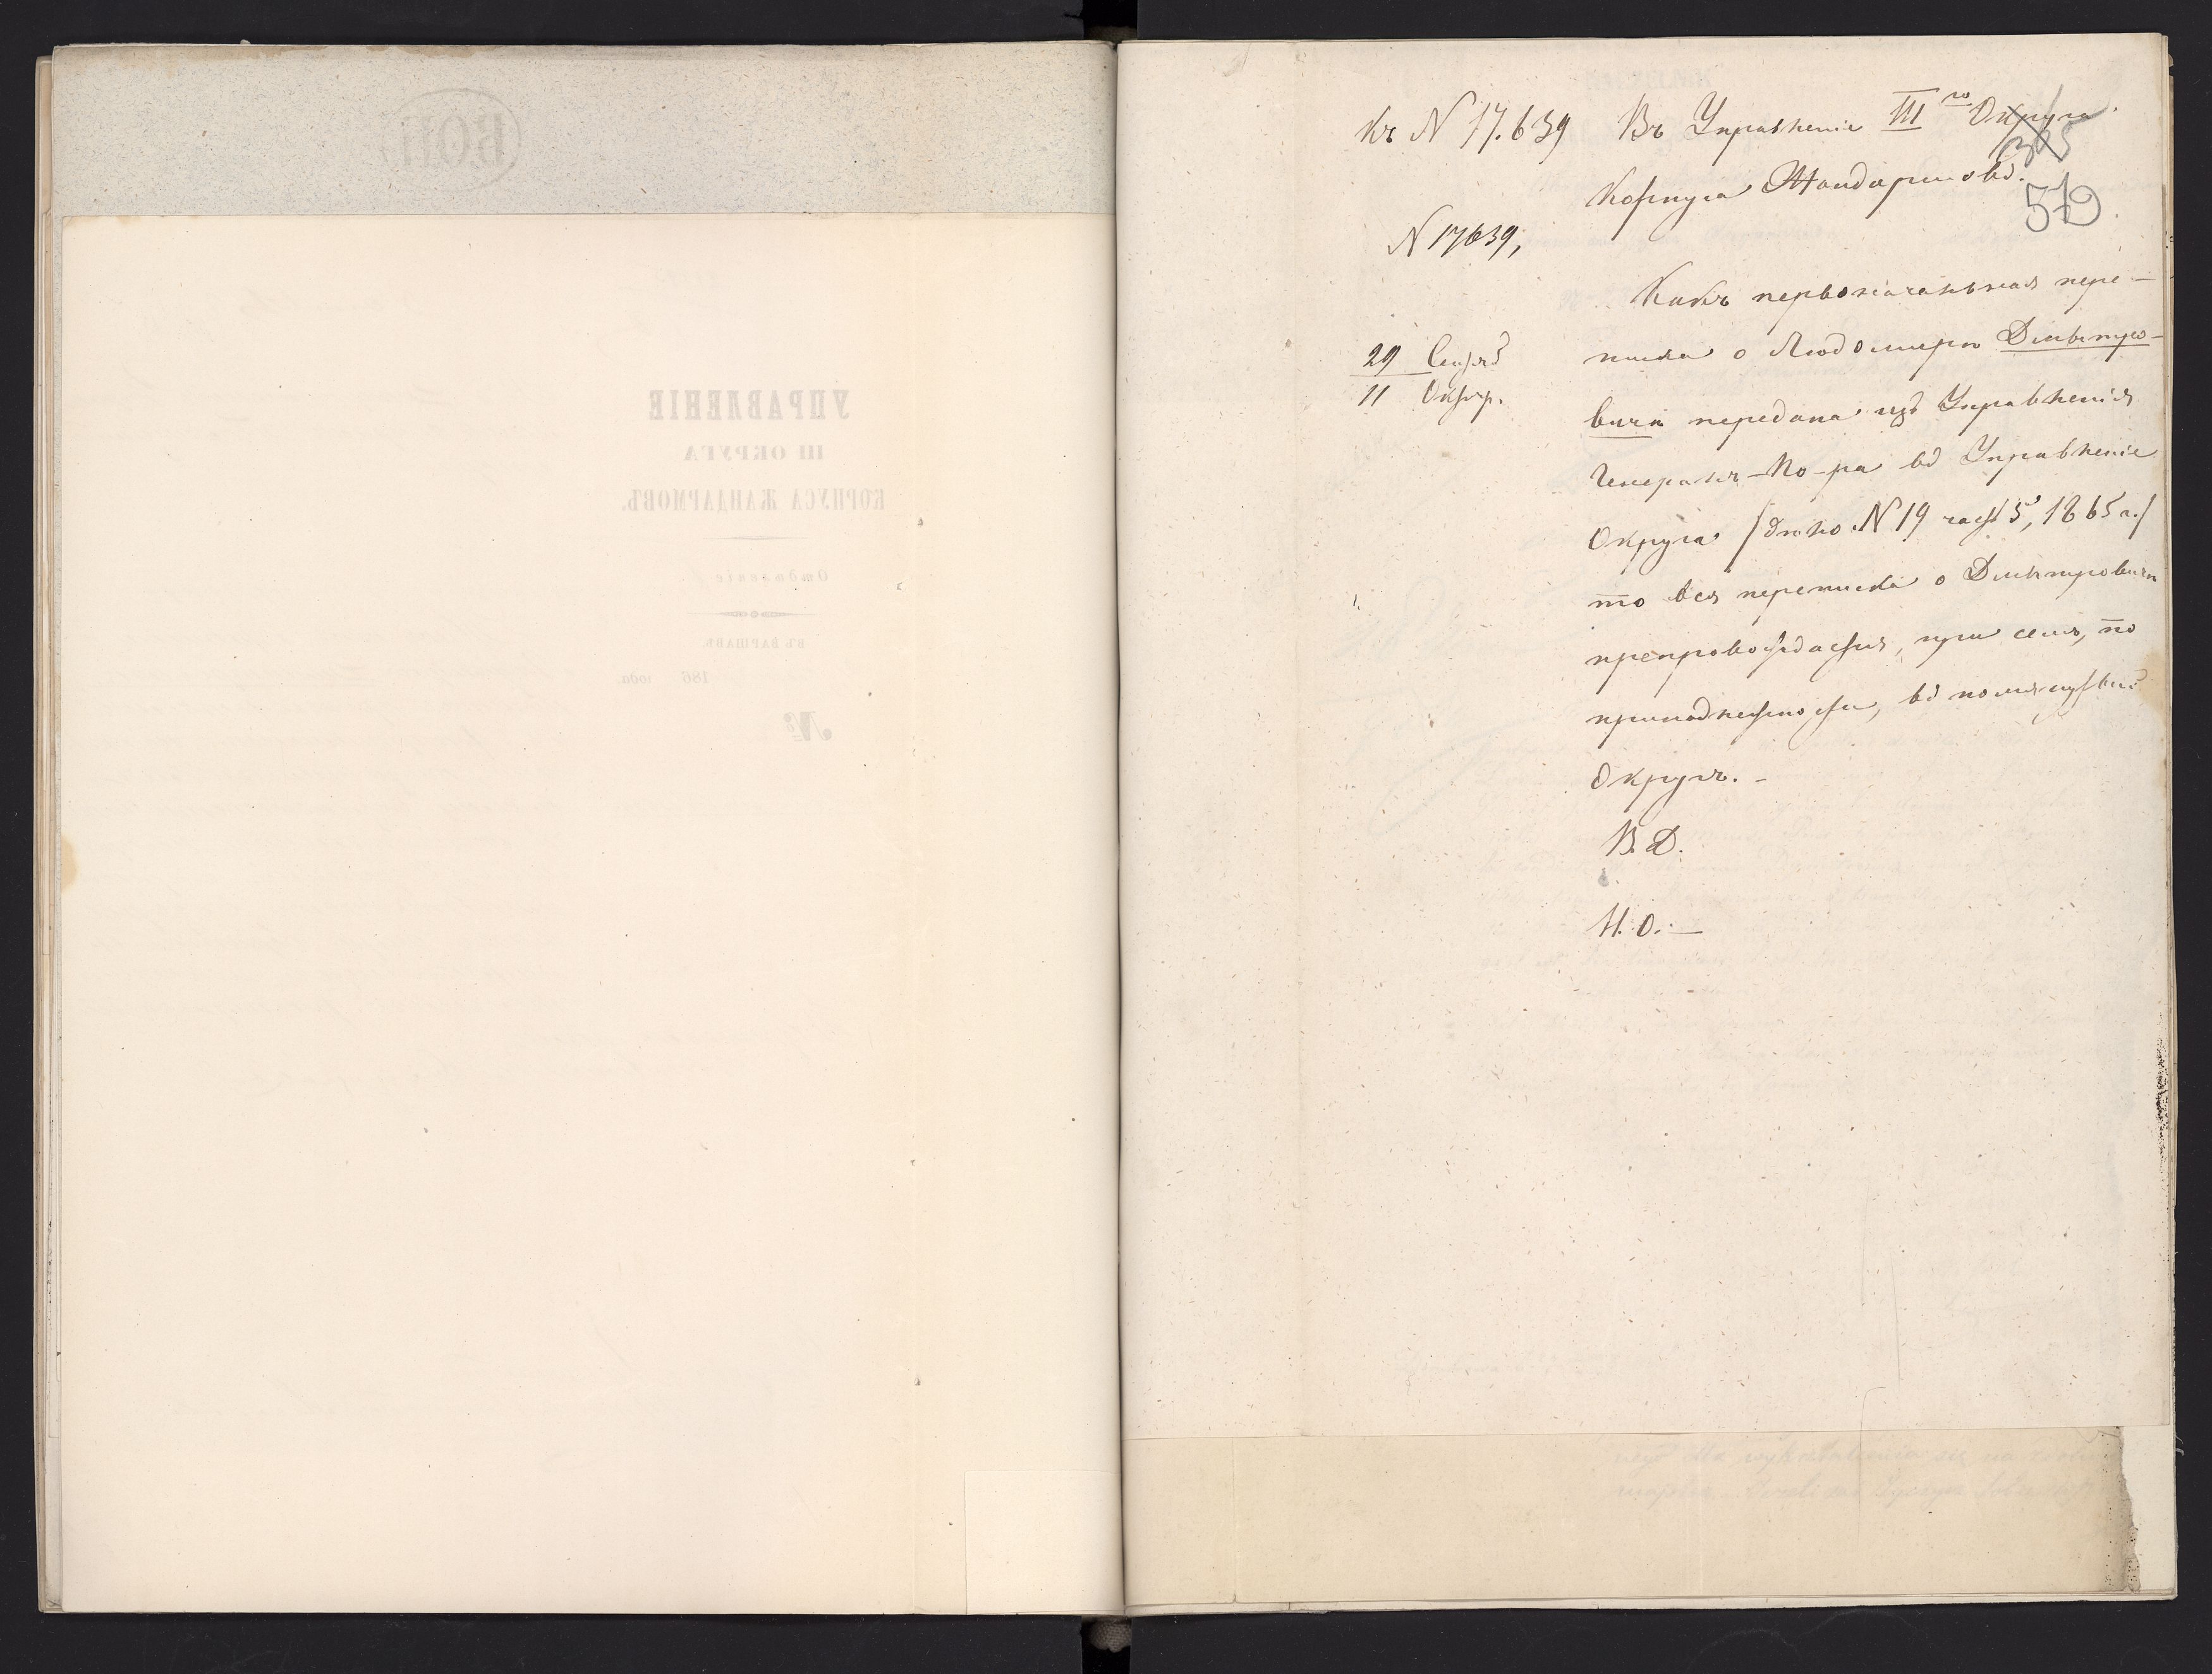 УПРАВЛЕНІЕ
III ОКРУГА
КОРПУСА ЖАНДАРМОВЪ.
Отдѣленіе
ВЪ ВАРШАВѢ.
186 года.
№
Къ N 17.639
Въ Управленіе III го Округа
Корпуса Жандармовъ.
345
572
N 17639,
29 Сентяб
11 Октяр.
Какъ первоначальная пере-
писка о Людомирѣ Дмытро-
вичѣ передана изъ Управленія
Генералъ-По-ра въ Управленіе
Округа /дѣло N 19 часть 5, 1865 г./
то вся переписка о Дмытровичѣ
препровождается, при семъ, по
принадлежности, въ помянутый
Округъ. -
В. Д.
Н. О. —